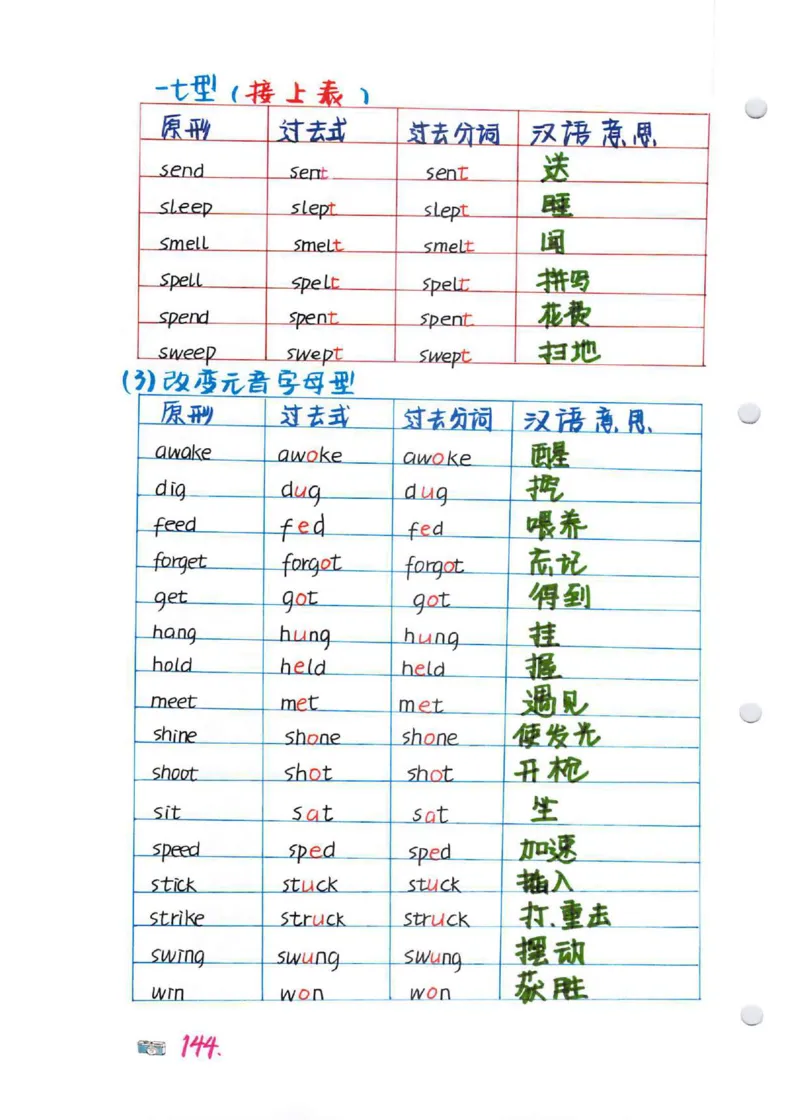 -t型(接上表)
原形 过去式 过去分词 汉语意思
send sent sent 送
sleep slept slept 睡
smell smelt smelt 闻
spell spelt spelt 拼写
spend spent spent 花费
sweep swept swept 扫地
(3)改变元音字母型
原形 过去式 过去分词 汉语意思
awake awoke awoke 醒
dig dug dug 挖
feed fed fed 喂养
forget forgot forgot 忘记
get got got 得到
hang hung hung 挂
hold held held 握
meet met met 遇见
shine shone shone 使发光
shoot shot shot 开枪
sit sat sat 坐
speed sped sped 加速
stick stuck stuck 插入
strike struck struck 打、重击
swing swung swung 摆动
win won won 获胜
144.